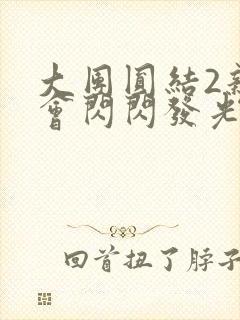 大團圓結2新
會閃閃發光
回首扭了脖子